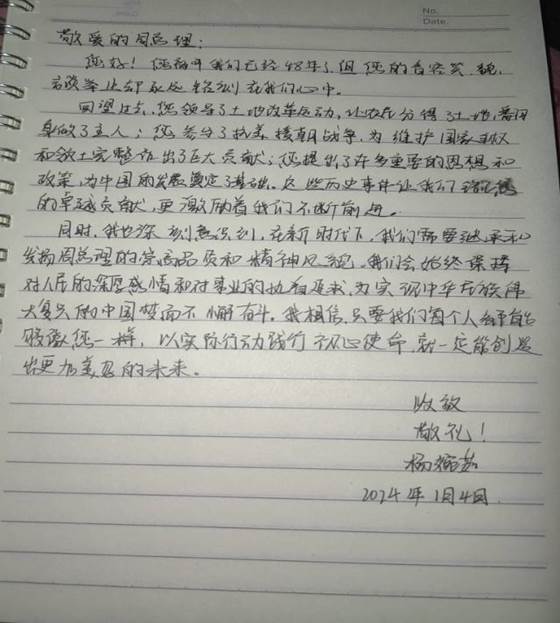 No.
Date.
敬爱的周总理：
您好！您离开我们已经48年了，但您的音容笑貌、
言谈举止却永远铭刻在我们心中。
回望过去，您领导了土地改革运动，让农民分得了土地，翻
身做了主人；您参与了抗美援朝战争，为维护国家主权
和领土完整作出了巨大贡献；您提出了许多重要的思想和
政策，为中国的发展奠定了基础。这些历史事件让我们
的卓越贡献，更激励着我们不断前进。
同时，我也深刻意识到，在新时代下，我们需要继承和
发扬周总理的崇高品质和精神风范。我们会始终保持
对人民的深厚感情和对事业的执着追求，为实现中华民族伟
大复兴的中国梦而不懈奋斗。我相信，只要我们每个人都能
像您一样，以实际行动践行初心使命，就一定能创造
出更加美好的未来。
此致
敬礼！
杨
2024年1月4日